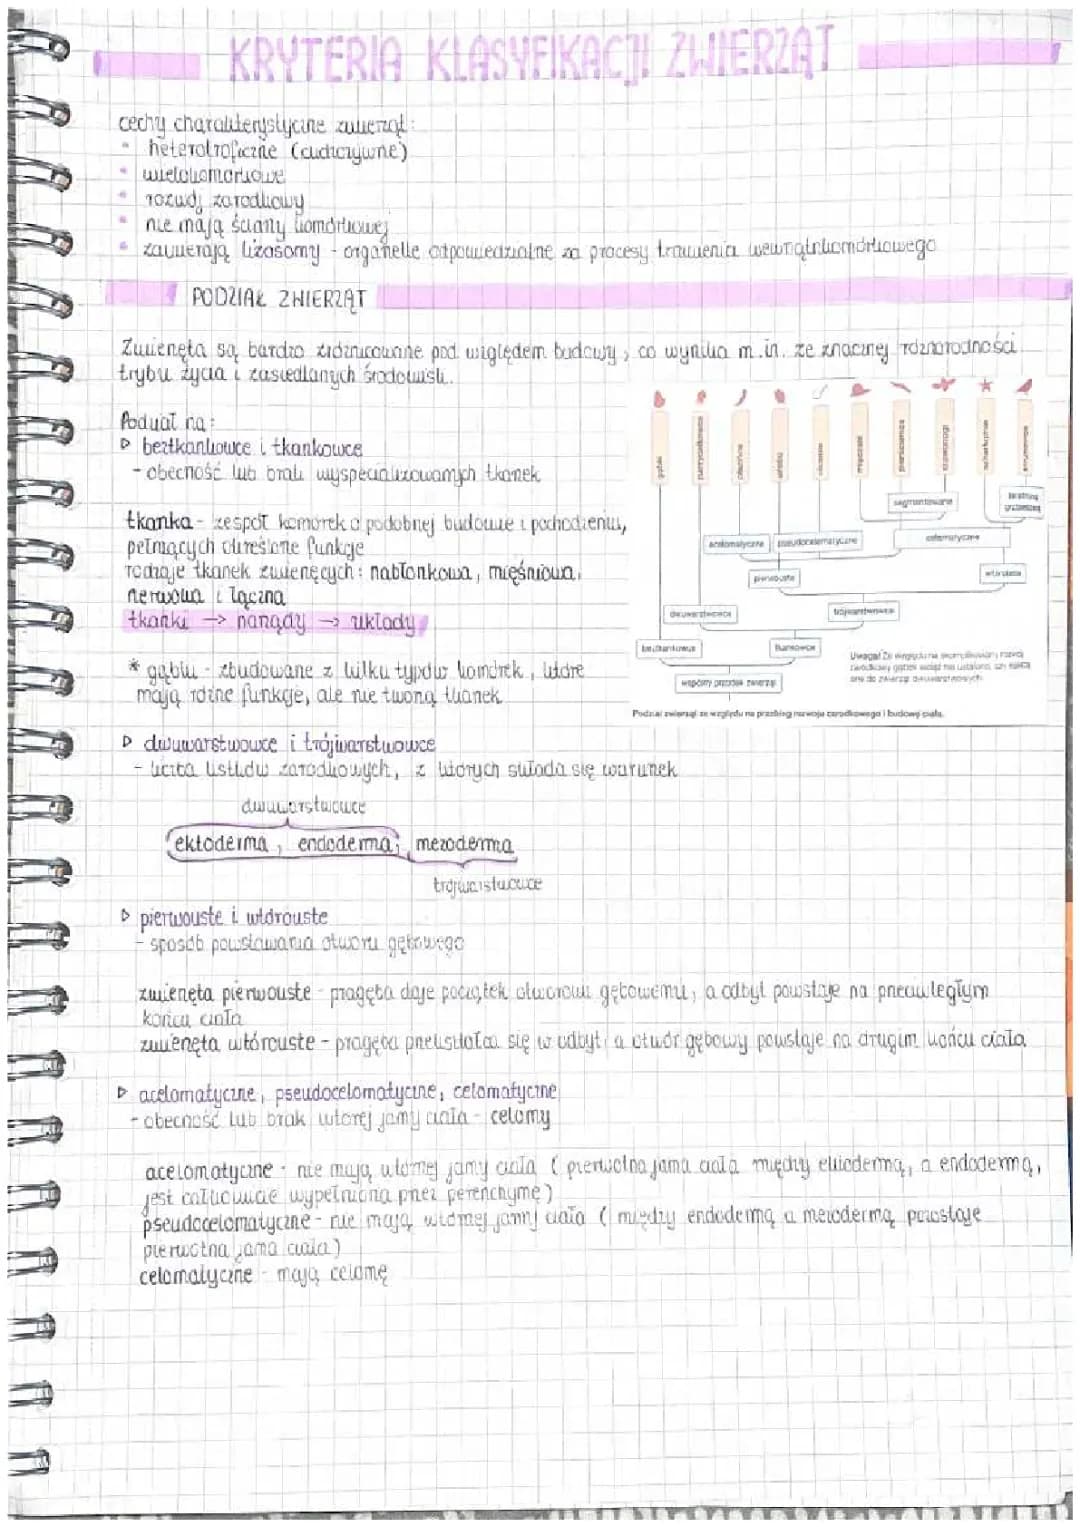 KRYTERIA KLASYFIKACJI ZWIERZĄT
cechy charakterystyczne zwierząt:
heterotroficzne (cudzożywne)
wielokomórkowe
rozwój zarodkowy
nie mają ściany komórkowej
zawierają lizosomy - organelle odpowiedzialne za procesy trawienia wewnątrzkomórkowego
PODZIAŁ ZWIERZĄT
Zwierzęta są bardzo zróżnicowane pod względem budowy, co wynika m.in. ze znacznej różnorodności
trybu życia i zasiedlanych środowisk.
Podział na:
▷ beztkankowce i tkankowce
- obecność lub brak wyspecjalizowanych tkanek
tkanka - zespół komórek o podobnej budowie i pochodzeniu,
pełniących określone funkcje
rodzaje tkanek zwierzęcych: nabłonkowa, mięśniowa,
nerwowa i łączna
tkanki → narządy → układy
* gąbki - zbudowane z kilku typów komórek, które
mają różne funkcje, ale nie tworzą tkanek
gąbki
parzydełkowce
płazińce
wrotki
nicienie
mięczaki
pierścienice
stawonogi
szkarłupnie
strunowce
segmentowane
acelomatyczne
pseudocelomatyczne
celomatyczne
pierwouste
wtórouste
dwuwarstwowce
trójwarstwowce
beztkankowce
tkankowce
wspólny przodek zwierząt
Uwaga! Ze względu na skomplikowany rozwój
zarodkowy gąbek wciąż nie ustalono, czy należą
one do zwierząt dwuwarstwowych.
Podział zwierząt ze względu na przebieg rozwoju zarodkowego i budowę ciała.
▷ dwuwarstwowce i trójwarstwowce
- liczba listków zarodkowych, z których składa się warunek
dwuwarstwowce
ektoderma, endoderma, mezoderma
trójwarstwowce
▷ pierwouste i wtórouste
- sposób powstawania otworu gębowego
zwierzęta pierwouste - pragęba daje początek otworowi gębowemu, a odbyt powstaje na przeciwległym
końcu ciała
zwierzęta wtórouste - pragęba przekształca się w odbyt, a otwór gębowy powstaje na drugim końcu ciała
▷ acelomatyczne, pseudocelomatyczne, celomatyczne
- obecność lub brak wtórej jamy ciała - celomy
acelomatyczne - nie mają wtórnej jamy ciała (pierwotna jama ciała między ektodermą, a endodermą,
jest całkowicie wypełniona przez parenchymę)
pseudocelomatyczne - nie mają wtórnej jamy ciała (między endodermą a mezodermą pozostaje
pierwotna jama ciała)
celomatyczne - mają celomę